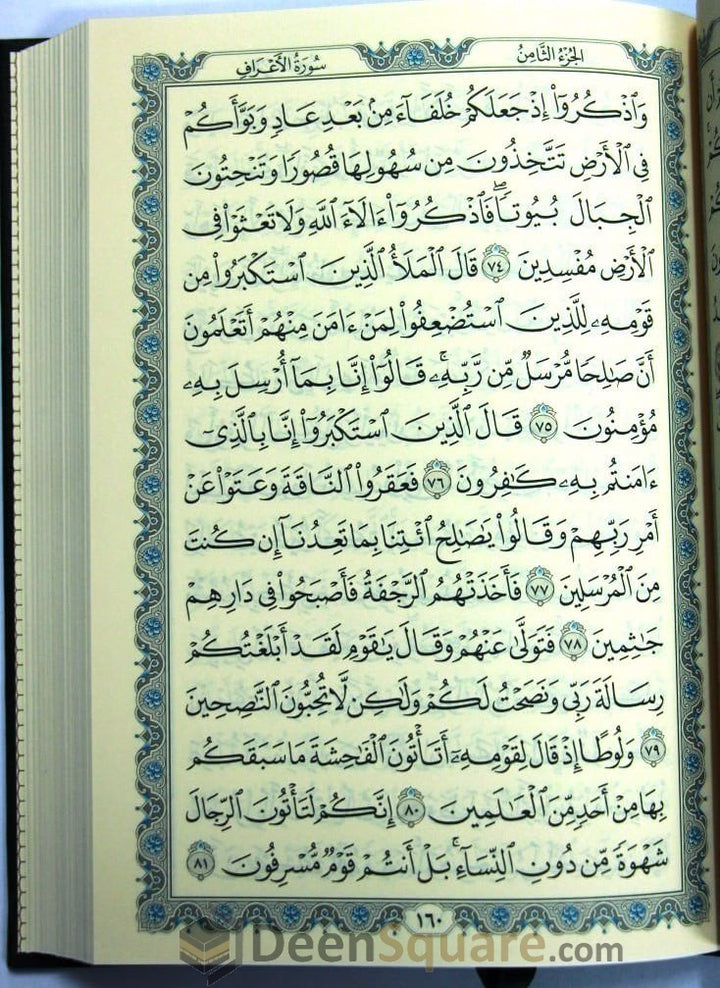 الجُزْءُ الثَّامِنُ
سُورَةُ الأَعْرَافِ
وَٱذْكُرُوٓا۟ إِذْ جَعَلَكُمْ خُلَفَآءَ مِنۢ بَعْدِ عَادٍ وَبَوَّأَكُمْ
فِى ٱلْأَرْضِ تَتَّخِذُونَ مِن سُهُولِهَا قُصُورًا وَتَنْحِتُونَ
ٱلْجِبَالَ بُيُوتًا ۖ فَٱذْكُرُوٓا۟ ءَالَآءَ ٱللَّهِ وَلَا تَعْثَوْا۟ فِى
ٱلْأَرْضِ مُفْسِدِينَ ٧٤ قَالَ ٱلْمَلَأُ ٱلَّذِينَ ٱسْتَكْبَرُوا۟ مِن
قَوْمِهِۦ لِلَّذِينَ ٱسْتُضْعِفُوا۟ لِمَنْ ءَامَنَ مِنْهُمْ أَتَعْلَمُونَ
أَنَّ صَـٰلِحًا مُّرْسَلٌ مِّن رَّبِّهِۦ ۚ قَالُوٓا۟ إِنَّا بِمَآ أُرْسِلَ بِهِۦ
مُؤْمِنُونَ ٧٥ قَالَ ٱلَّذِينَ ٱسْتَكْبَرُوٓا۟ إِنَّا بِٱلَّذِىٓ
ءَامَنتُم بِهِۦ كَـٰفِرُونَ ٧٦ فَعَقَرُوا۟ ٱلنَّاقَةَ وَعَتَوْا۟ عَنْ
أَمْرِ رَبِّهِمْ وَقَالُوا۟ يَـٰصَـٰلِحُ ٱئْتِنَا بِمَا تَعِدُنَآ إِن كُنتَ
مِنَ ٱلْمُرْسَلِينَ ٧٧ فَأَخَذَتْهُمُ ٱلرَّجْفَةُ فَأَصْبَحُوا۟ فِى دَارِهِمْ
جَـٰثِمِينَ ٧٨ فَتَوَلَّىٰ عَنْهُمْ وَقَالَ يَـٰقَوْمِ لَقَدْ أَبْلَغْتُكُمْ
رِسَالَةَ رَبِّى وَنَصَحْتُ لَكُمْ وَلَـٰكِن لَّا تُحِبُّونَ ٱلنَّـٰصِحِينَ
٧٩ وَلُوطًا إِذْ قَالَ لِقَوْمِهِۦٓ أَتَأْتُونَ ٱلْفَـٰحِشَةَ مَا سَبَقَكُم
بِهَا مِنْ أَحَدٍ مِّنَ ٱلْعَـٰلَمِينَ ٨٠ إِنَّكُمْ لَتَأْتُونَ ٱلرِّجَالَ
شَهْوَةً مِّن دُونِ ٱلنِّسَآءِ ۚ بَلْ أَنتُمْ قَوْمٌ مُّسْرِفُونَ ٨١
١٦٠
DeenSquare.com